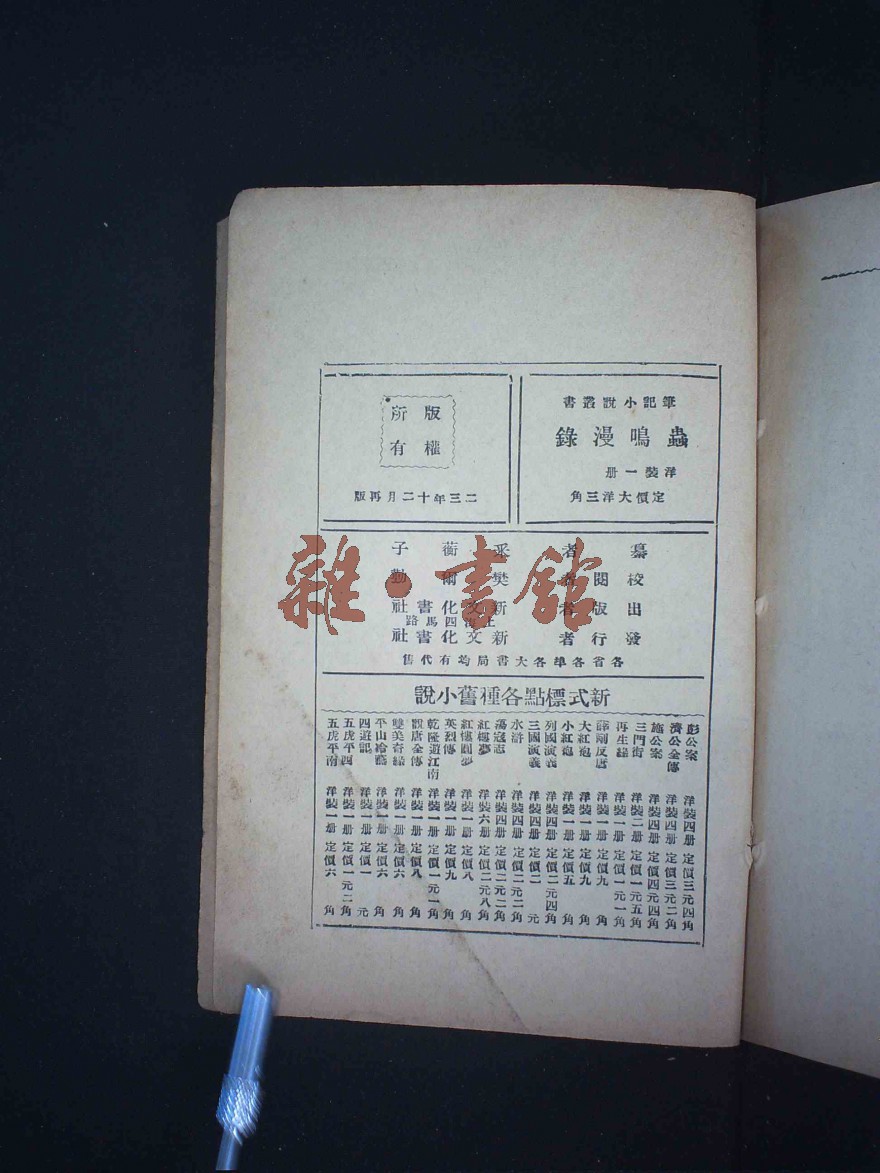 筆記小說叢書
蟲鳴漫錄
洋裝一册
定價大洋三角
版權
所有
二三年十二月再版
纂者 采蘅子
校閱者 樊爾勤
出版者 新文化書社
上海四馬路
發行者 新文化書社
各省各埠各大書局均有代售
新式標點各種舊小說
彭公案 洋裝四册 定價三元四角
濟公全傳 洋裝四册 定價三元二角
施公案 洋裝四册 定價四元四角
三門街 洋裝二册 定價一元五角
再生緣 洋裝一册 定價一元一角
薛剛反唐 洋裝一册 定價九角
大紅袍 洋裝一册 定價九角
小紅袍 洋裝一册 定價五角
列國演義 洋裝四册 定價二元四角
三國演義 洋裝四册 定價二元
水滸 洋裝四册 定價二元二角
蕩寇志 洋裝四册 定價二元二角
紅樓夢 洋裝六册 定價二元八角
紅樓圓夢 洋裝一册 定價八角
英烈傳 洋裝一册 定價九角
乾隆遊江南 洋裝一册 定價一元一角
說唐全傳 洋裝一册 定價八角
雙美奇緣 洋裝一册 定價六角
平山冷燕 洋裝一册 定價六角
四遊記 洋裝一册 定價一元
五虎平西 洋裝一册 定價一元二角
五虎平南 洋裝一册 定價六角
雜·書館